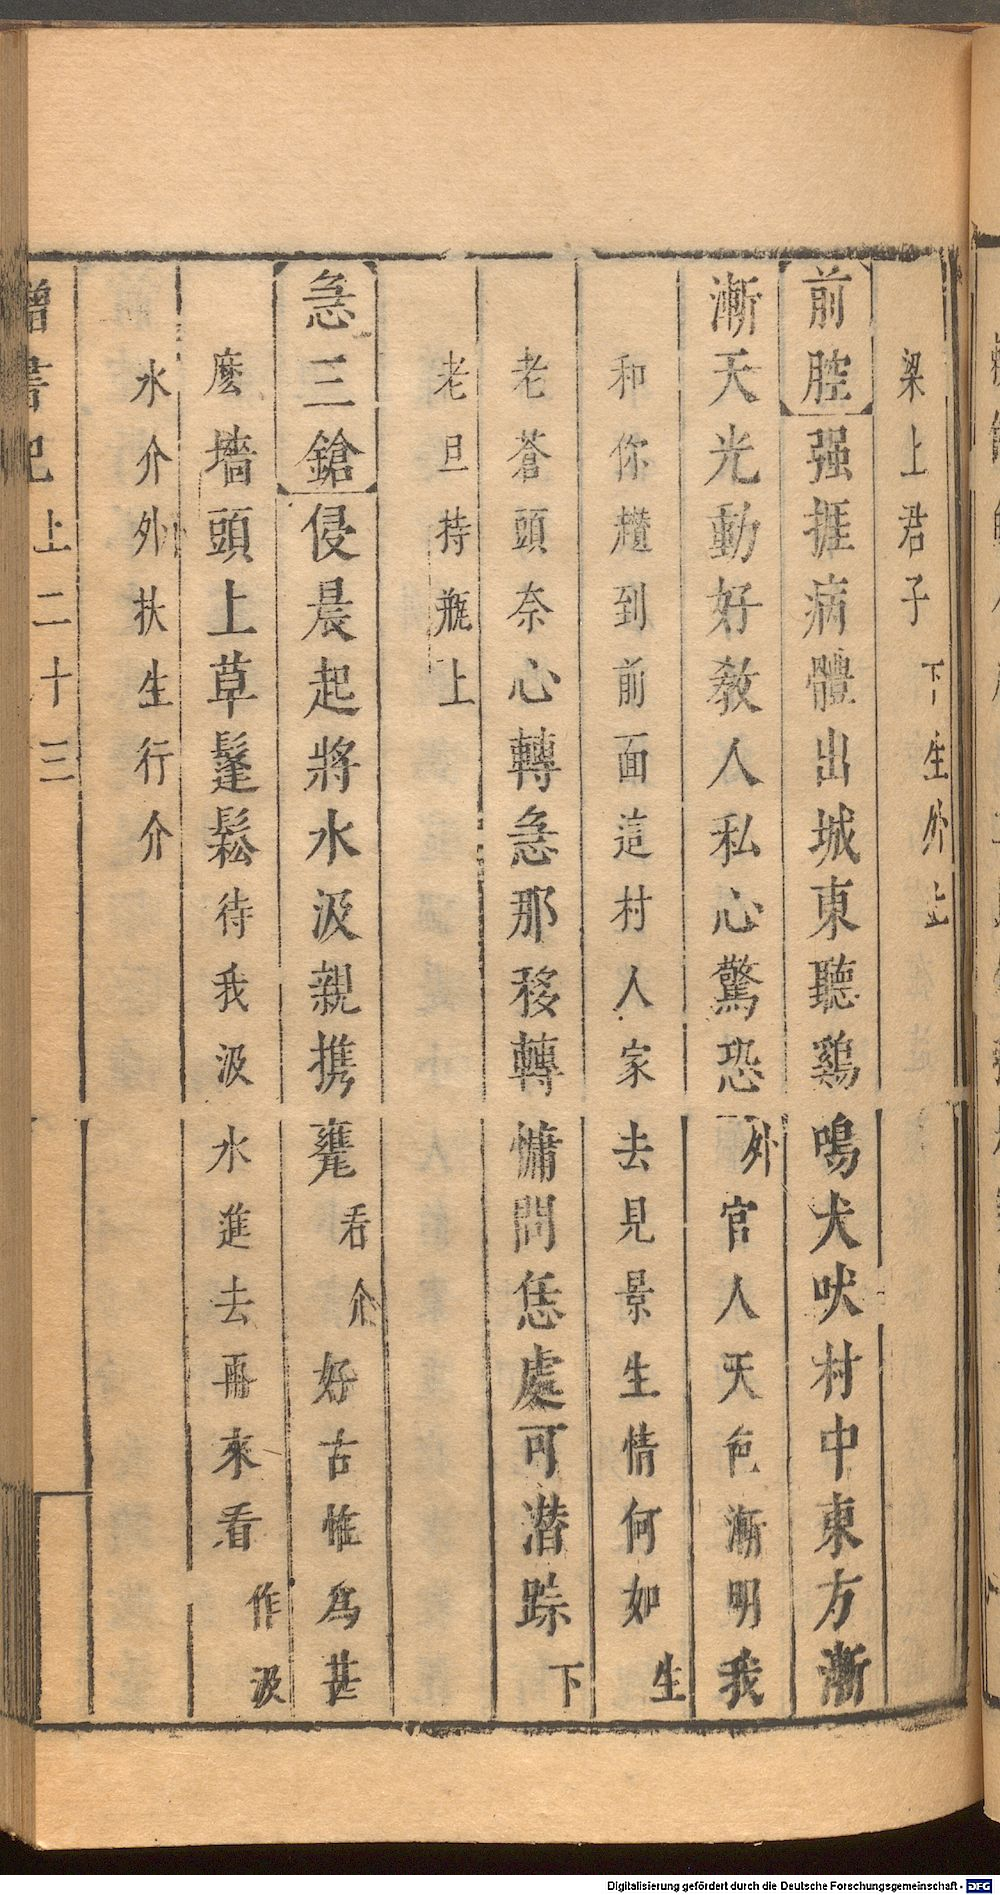 梁上君子下生外上
前腔强捱病體出城東聽鷄鳴犬吠村中東方漸
漸天光動好教人私心驚恐外官人天色漸明我
和你趲到前面這村人家去見景生情何如生
老蒼頭奈心轉急那移轉慵問恁處可潛踪下
老旦持瓶上
急三鎗侵晨起將水汲親携甕看介好古怪爲甚
麼墻頭上草鬔鬆待我汲水進去再來看作汲
水介外扶生行介
書記上二十三
Digitalisierung gefördert durch die Deutsche Forschungsgemeinschaft - DFG